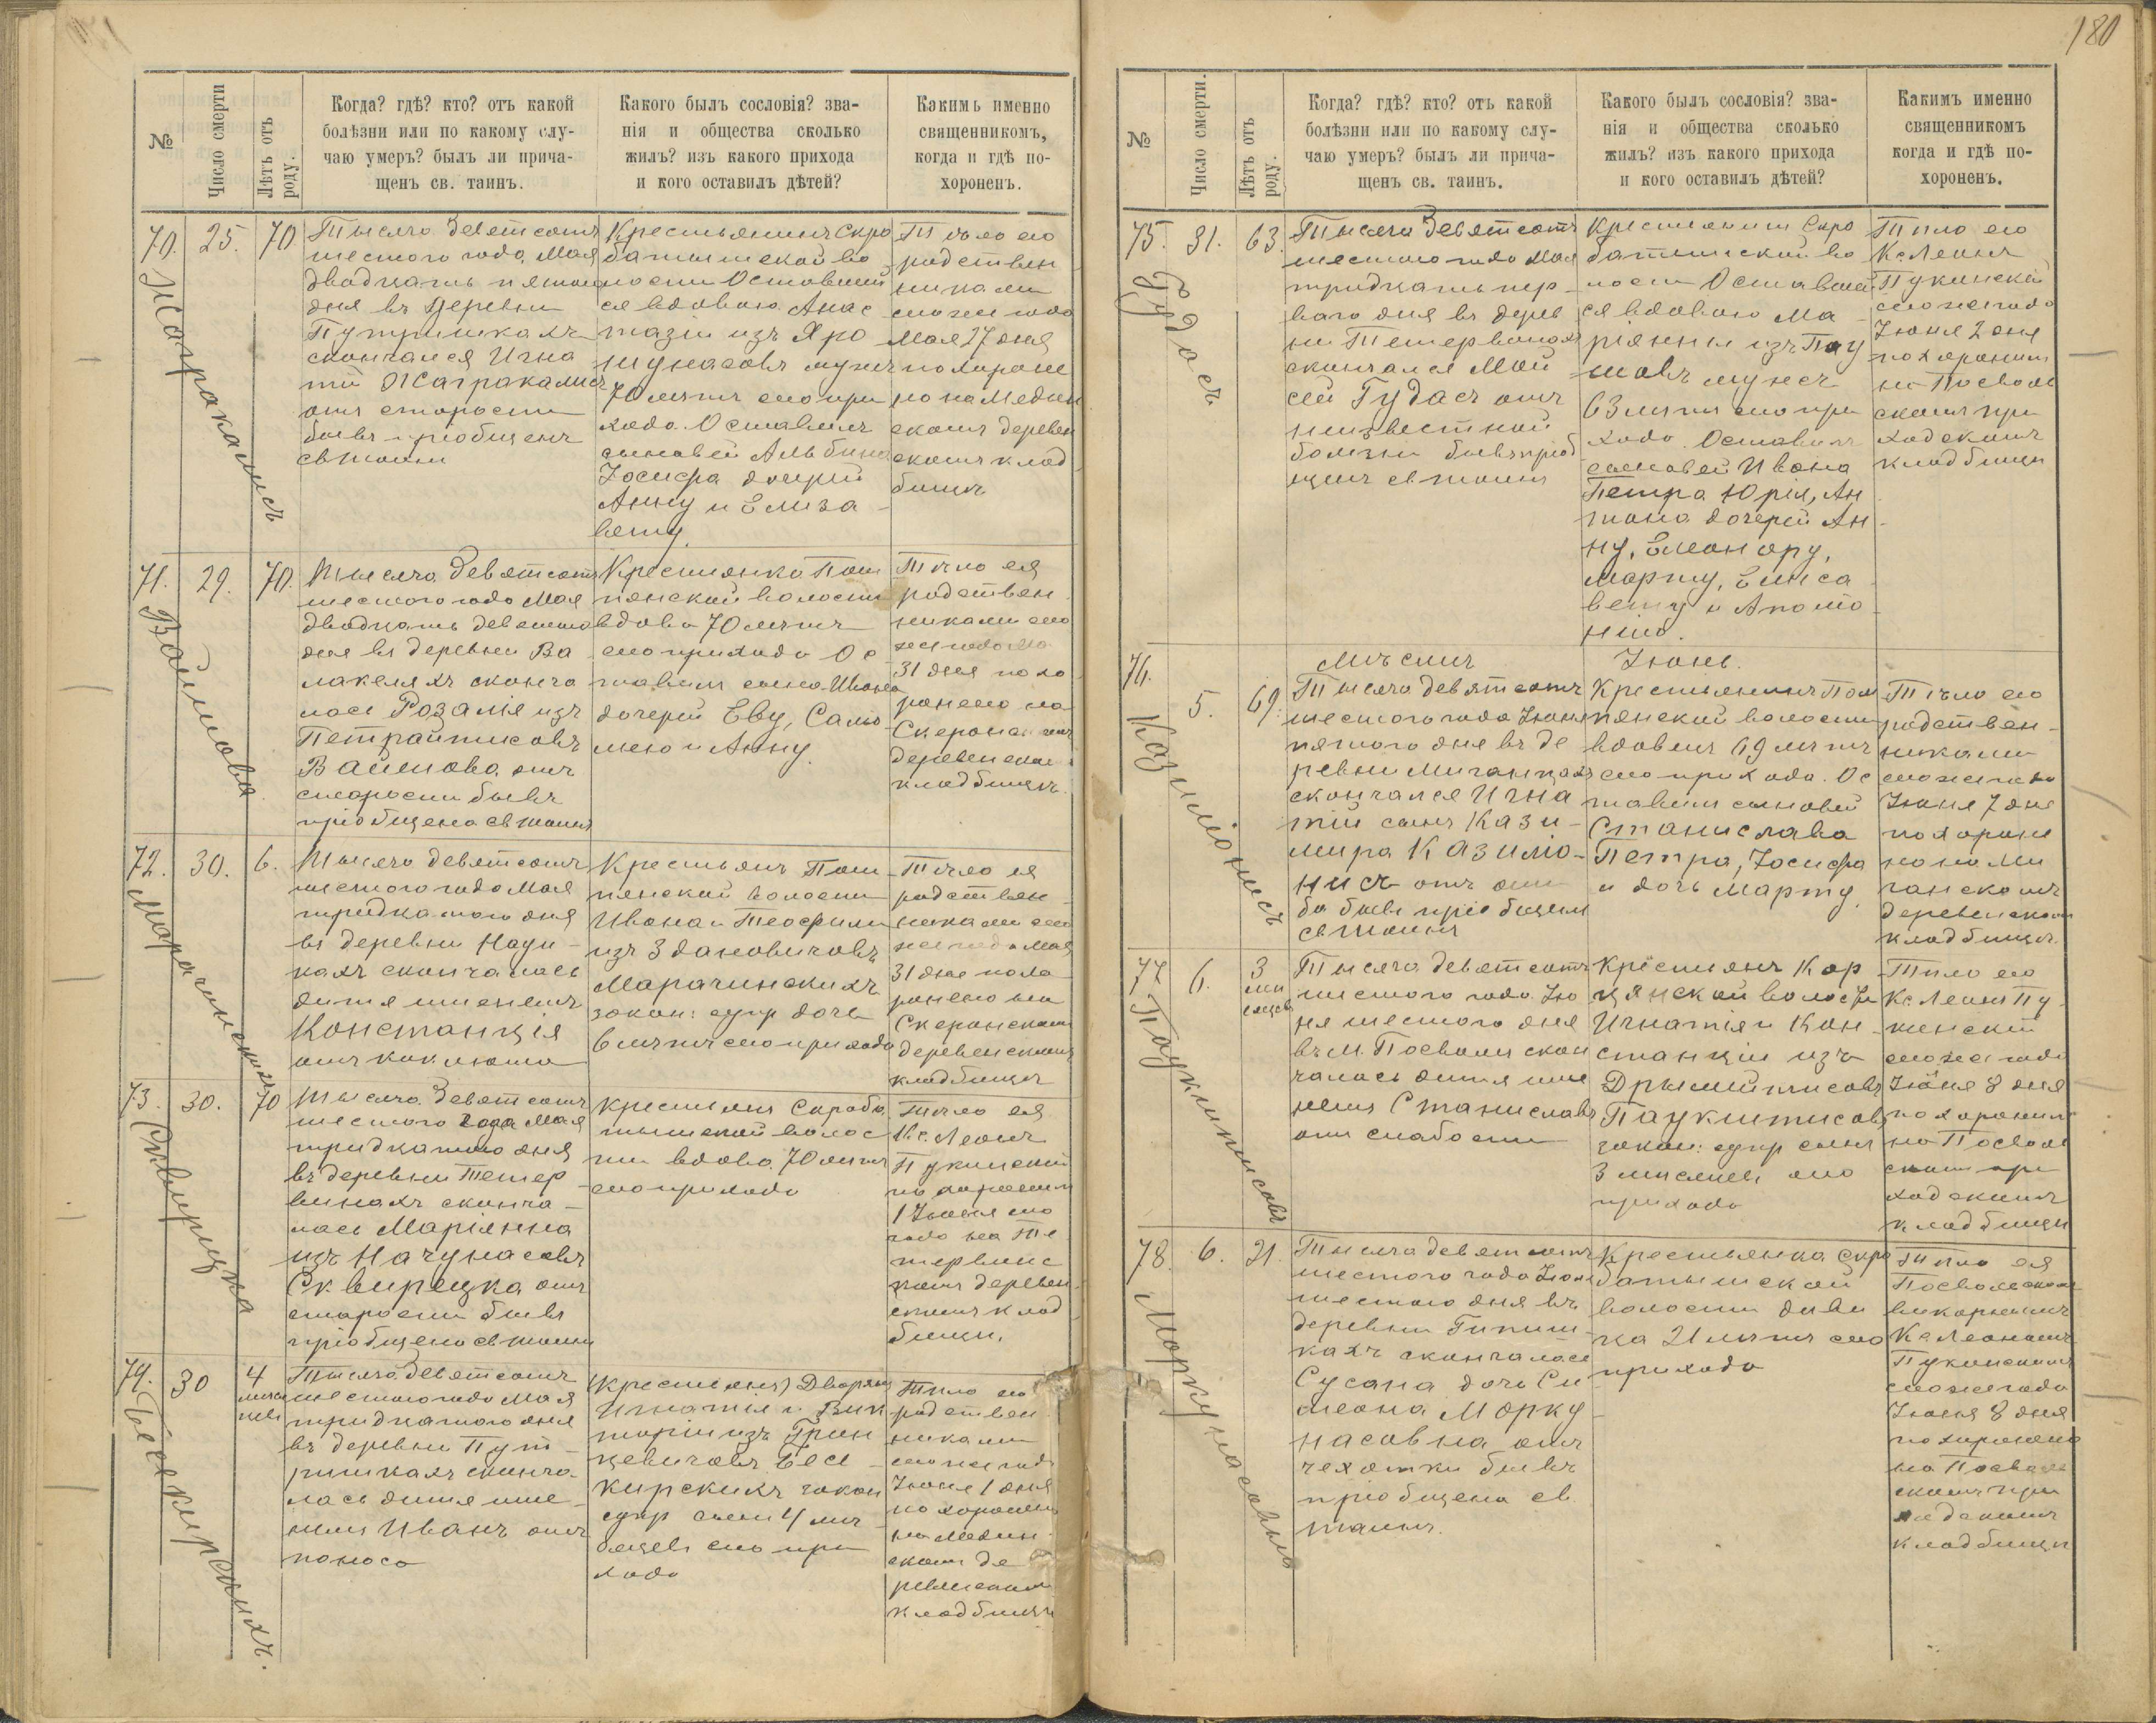 180
№
Число смерти
Лѣтъ отъ роду.
Когда? гдѣ? кто? отъ какой
болѣзни или по какому слу-
чаю умеръ? былъ ли прича-
щенъ св. таинъ.
Какого былъ сословія? зва-
нія и общества сколько
жилъ? изъ какого прихода
и кого оставилъ дѣтей?
Какимъ именно
священникомъ,
когда и гдѣ по-
хороненъ.
70.
25.
70.
Жагракалисъ
Тысяча девятсотъ
шестого года Мая
двадцать пятого
дня въ деревни
Путришкахъ
скончался Игна
тій Жагракалисъ
отъ старости
бывъ пріобщенъ
св тоинъ
Крестьянинъ Скро
батышской во
лости Оставшій
ся вдовою Анас
тазіи изъ Яро
шунасовъ мужъ
70 лѣтъ сего при
хода. Оставилъ
сыновей Альбина
Іосифа дочерей
Анну и Елиза
вету.
Тѣло его
родствен
никами
сего же года
Мая 27 дня
похороне
но на Медин
скомъ деревен
скомъ клад
бищѣ
71.
29.
70.
Ваймова
Тысяча девятсотъ
шестого года Мая
двадцать девятого
дня въ деревни Ва
лакеляхъ сконча
лась Розалія изъ
Петрайтисовъ
Ваймова отъ
старости бывъ
пріобщена св тоинъ
Крестьянка Пом
пянской волости
вдова 70 лѣтъ
сего прихода Ос
тавила сына Ивана
дочерей Еву, Сало
мею и Анну.
Тѣло ея
родствен
никами сего
же года Ма
31 дня похо
ронено на
Скеронскомъ
деревенском
кладбищѣ.
72.
30.
6.
Марачинскихъ
Тысяча девятсотъ
шестого года Мая
тридцатого дня
въ деревни Нади-
кахъ скончалась
дитя именемъ
Констанція
отъ коклюша
Крестьянъ Пом
пянской волости
Ивана и Теофили
изъ Здановичовъ
Марачинскихъ
закон: супр дочь
6 лѣтъ сего прихода
Тѣло ея
родствен
никами сего
же года Мая
31 дня похо
ронено на
Скеронскомъ
деревенскомъ
кладбищѣ
73.
30.
70
Сквирецка
Тысяча девятсотъ
шестого года Мая
тридцатого дня
въ деревни Тетер
винахъ сконча-
лась Маріянна
изъ Начунасовъ
Сквирецка отъ
старости бывъ
пріобщена св тоинъ
Крестьянъ Скроба
тышской волос
ти вдова 70 лѣтъ
сего прихода
Тѣло ея
Кс. Леонъ
Пукинскій
похоронилъ
1 Іюня сего
года на Те
тервинс
комъ деревен
скомъ клад
бищи.
74.
30
4
мѣся
цевъ
Бесекирскихъ.
Тысяча девятсотъ
шестого года Мая
тридцатого дня
въ деревни Пут-
ришкахъ сконча-
лась дитя име-
немъ Иванъ отъ
поноса
(Крестьянъ) Дворянъ
Игнатія и Вик
торіи изъ Грин
цевичовъ Бесе-
кирскихъ закон
супр сынъ 4 мѣ-
сяцевъ сего при
хода
Тѣло его
родствен
никами
сего же года
Іюня 1 дня
похоронено
на Медин
скомъ де
ревенском
кладбищѣ
№
Число смерти.
Лѣтъ отъ роду.
Когда? гдѣ? кто? отъ какой
болѣзни или по какому слу-
чаю умеръ? былъ ли прича-
щенъ св. таинъ.
Какого былъ сословія? зва-
нія и общества сколько
жилъ? изъ какого прихода
и кого оставилъ дѣтей?
Какимъ именно
священникомъ
когда и гдѣ по-
хороненъ.
75.
31.
63.
Гудасъ
Тысяча девятсотъ
шестого года Мая
тридцать пер-
ваго дня въ дерев
ни Тетервинахъ
скончался Мой
сей Гудасъ отъ
неизвестной
болѣзни бывъ пріоб
щенъ св тоинъ
Крестьянинъ Скро
батышской во
лости Оставшій
ся вдовою Ма
ріянны изъ Пау
шовъ мужъ
63 лѣтъ сего при
хода. Оставилъ
сыновей Ивана
Петра Юрія, Ан
тона дочерей Ан
ну, Елеонору,
Марту, Елиса
вету и Аполо
нію.
Тѣло его
Кс Леонъ
Пукинскій
сего же года
Іюня 2 дня
похоронилъ
на Посволь
скомъ при
ходскомъ
кладбищи
Мѣсяцъ
Іюнь.
76.
5.
69.
Казимонисъ
Тысяча девятсотъ
шестого года Іюня
пятого дня въ де
ревни Миганцахъ
скончался Игна
тій сынъ Кази-
мира Казимо-
нисъ отъ
бывъ пріобщенъ
св тоинъ
Крестьянинъ Пом
пянской волости
вдовецъ 69 лѣтъ
сего прихода. Ос
тавилъ сыновей
Станислава
Петра, Іосифа
и дочь Марту.
Тѣло его
родствен-
никами
сего же года
Іюня 7 дня
похороне
но на Ми
ганскомъ
деревенском
кладбищѣ.
77.
6.
3
мѣ
сяцев
Паукштисовъ
Тысяча девятсотъ
шестого года Ію
ня шестого дня
въ м. Посволи скон
чалась дитя име
немъ Станиславъ
отъ слабости
Крестьянъ Кор
цянской волости
Игнатія и Кон-
станціи изъ
Дрымтисовъ
Паукштисовъ
закон: супр сынъ
3 мѣсяцевъ сего
прихода
Тѣло его
Кс Леонъ Пу
кинскій
сего же года
Іюня 8 дня
похоронилъ
на Посволь
скомъ при
ходскомъ
кладбищи
78.
6.
21.
Моркунасовна
Тысяча девятсотъ
шестого года Іюня
шестого дня въ
деревни Гипиш-
кахъ скончалась
Сусана дочь Си
меона Морку-
насовна отъ
чехотки бывъ
пріобщена св
тоинъ.
Крестьянка Скро
батышской
волости деви
ца 21 лѣтъ сего
прихода
Тѣло ея
Посвольским
викарнымъ
Кс Леономъ
Пукинскимъ
сего же года
Іюня 8 дня
похоронено
на Посволь
скомъ при
ходскомъ
кладбищи